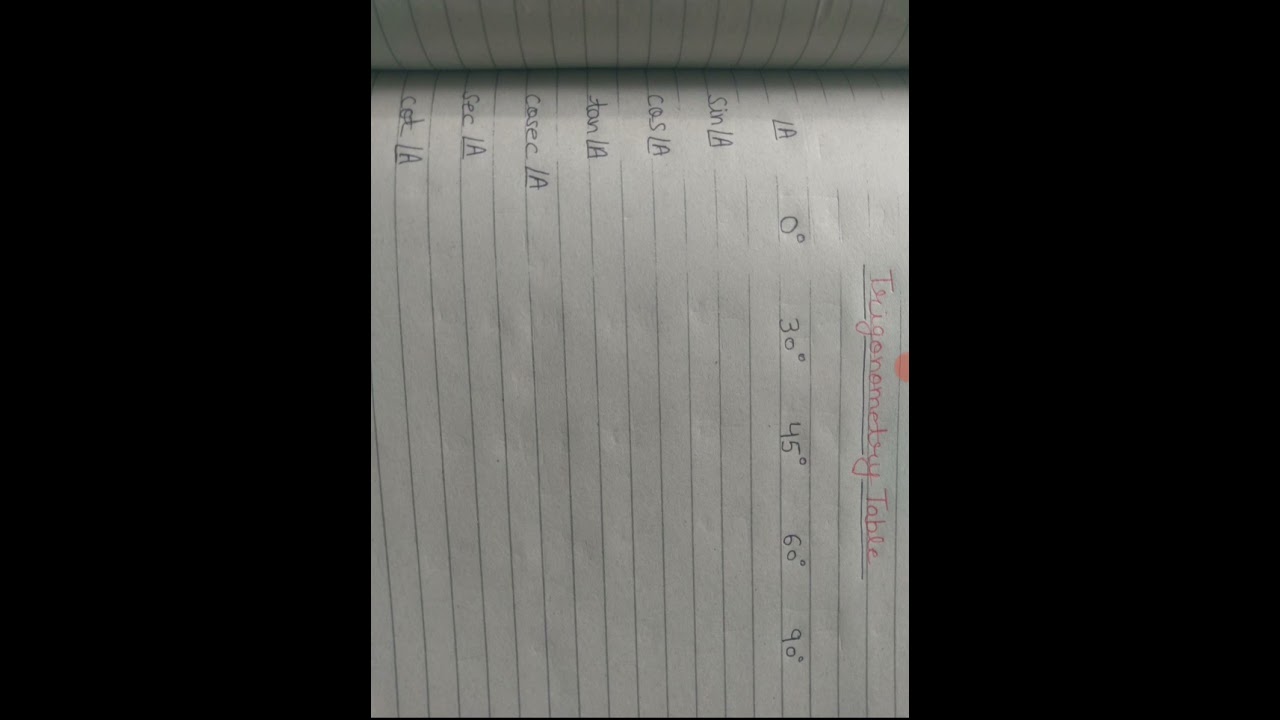 Trigonometry Table
∠A 0° 30° 45° 60° 90°
sin∠A
cos∠A
tan∠A
cosec∠A
sec∠A
cot∠A